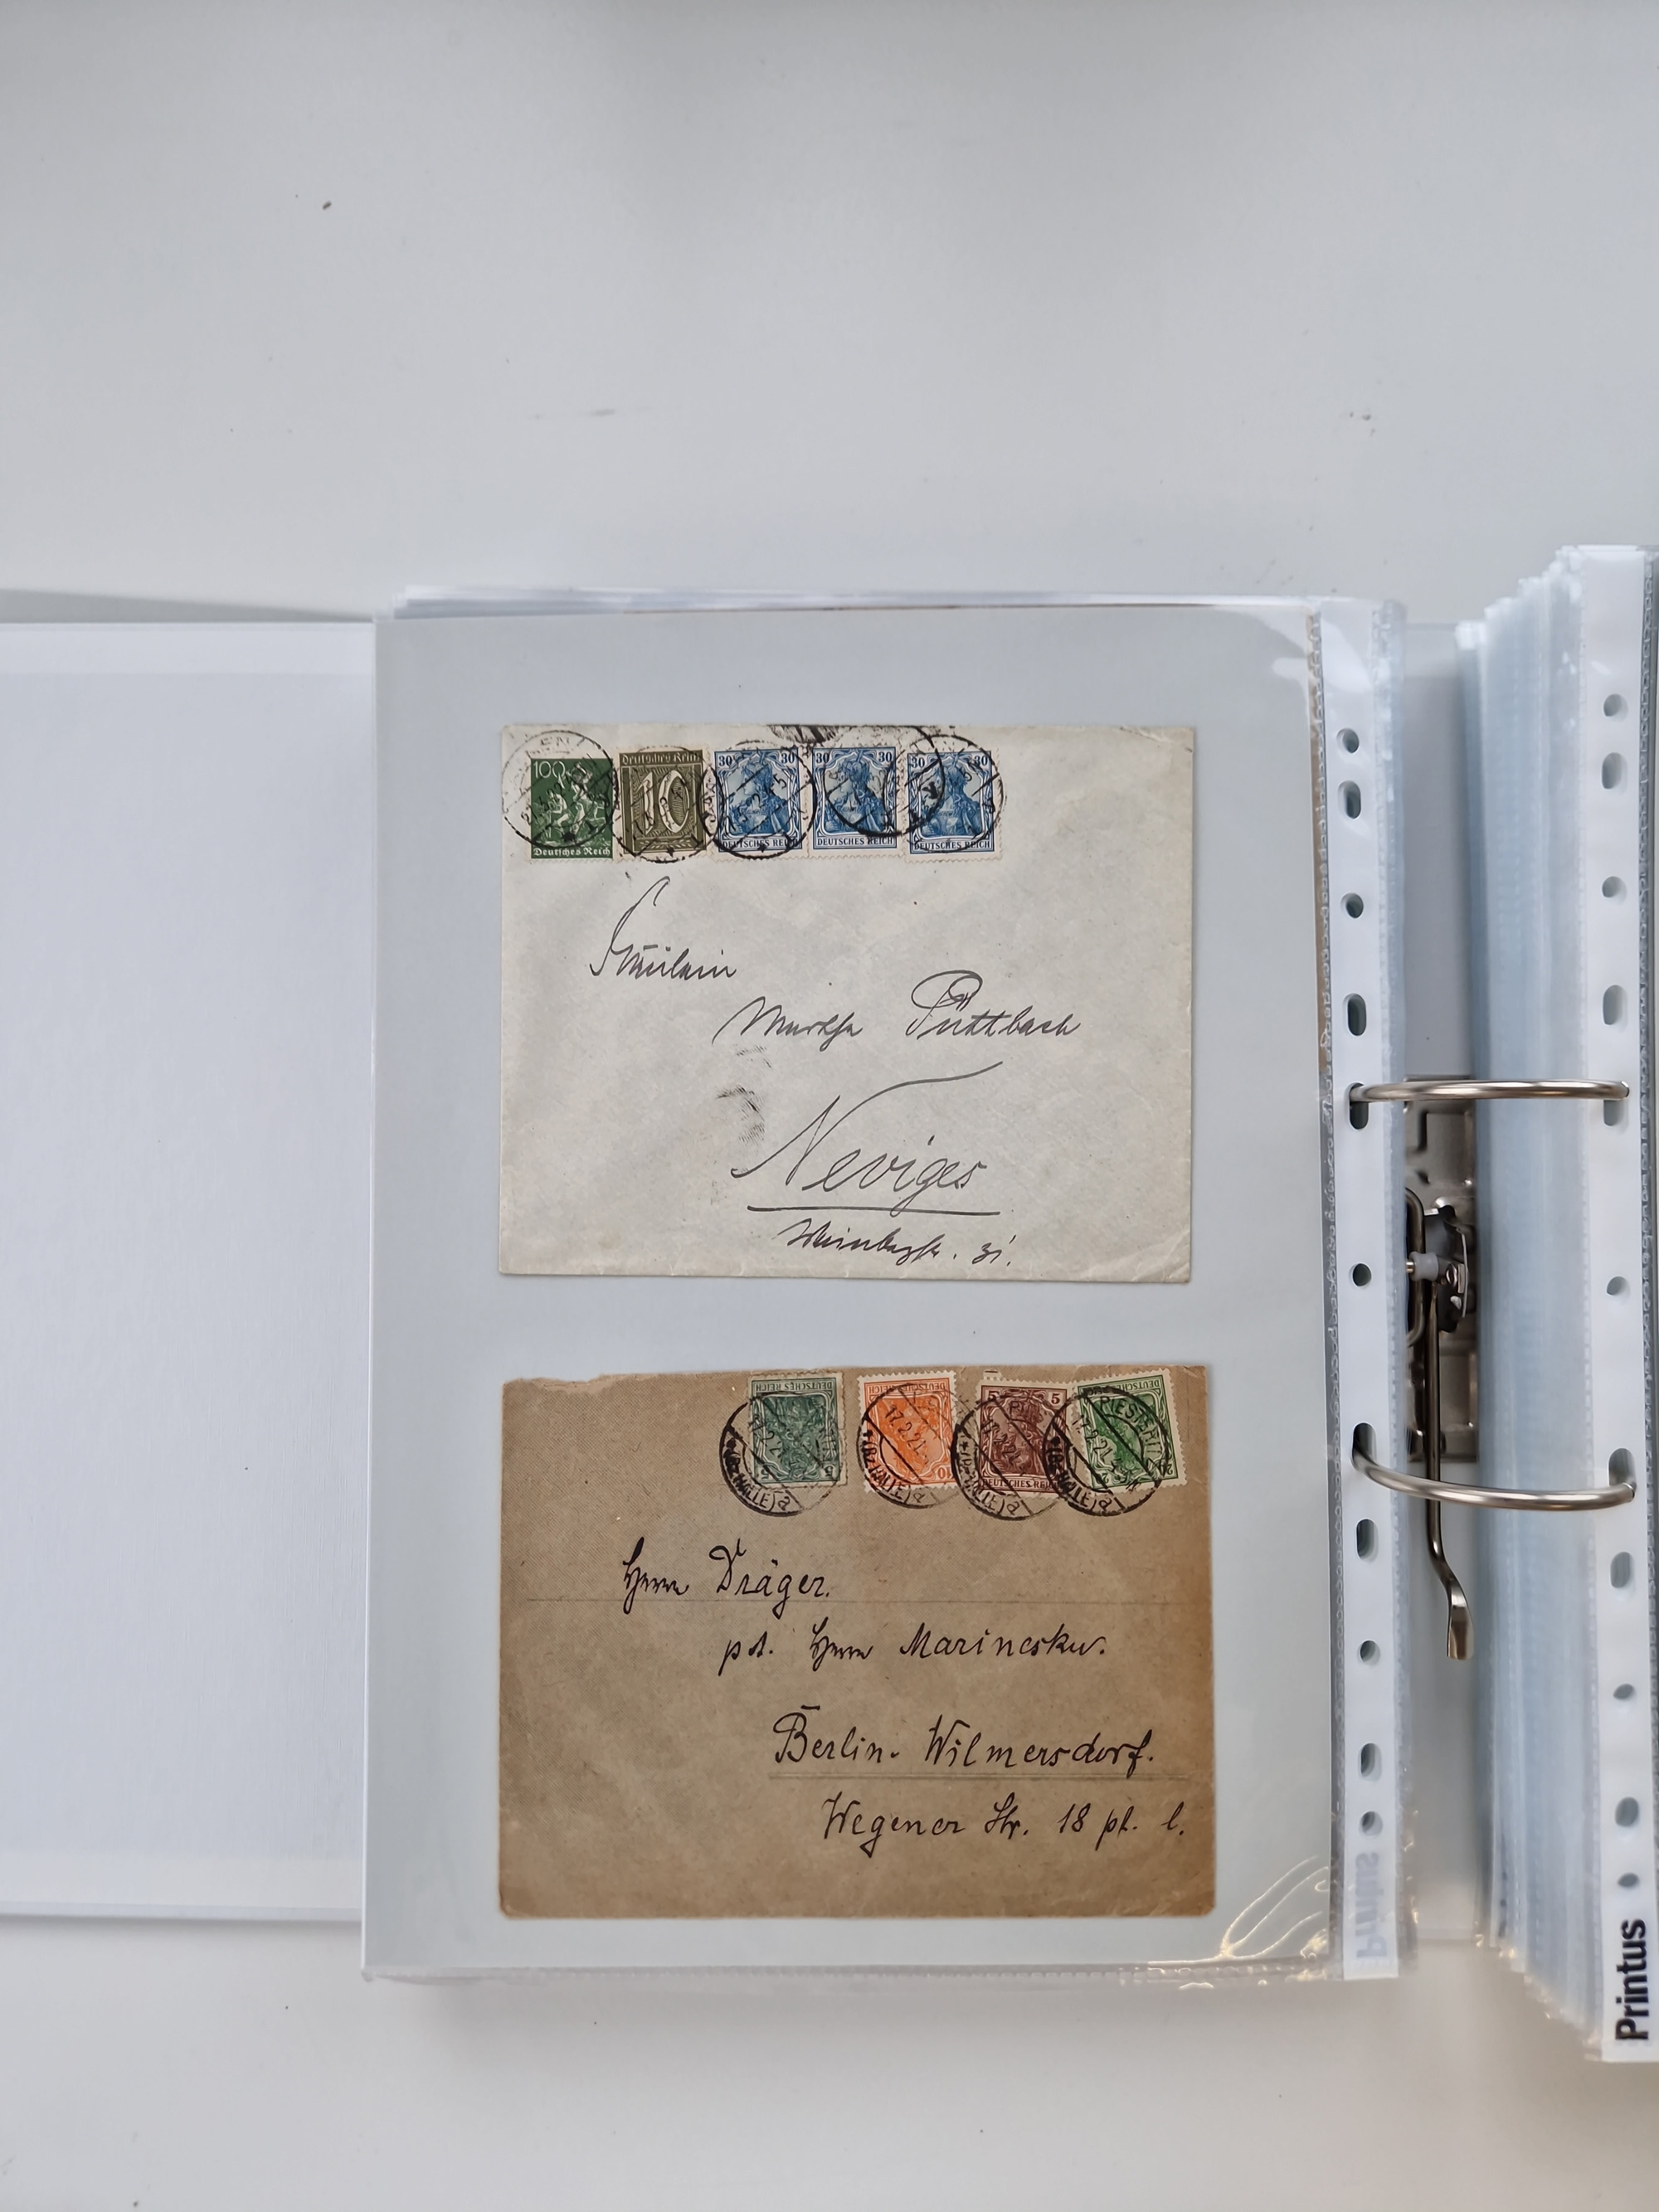 100
Deutsches Reich
Deutsches Reich
10
30 30
DEUTSCHES REICH
30 30
DEUTSCHES REICH
30 30
DEUTSCHES REICH
Fräulein
Martha Püttbach
Neviges
31.
DEUTSCHES REICH
5 5
DEUTSCHES REICH
10
5 5
DEUTSCHES REICH
DEUTSCHES REICH
20
PIESTERITZ
17.2.21
(Bz. HALLE) a
Herrn Dräger.
Herrn Marinesku.
Berlin-Wilmersdorf.
Wegener Str. 18 pt. l.
Printus
Printus